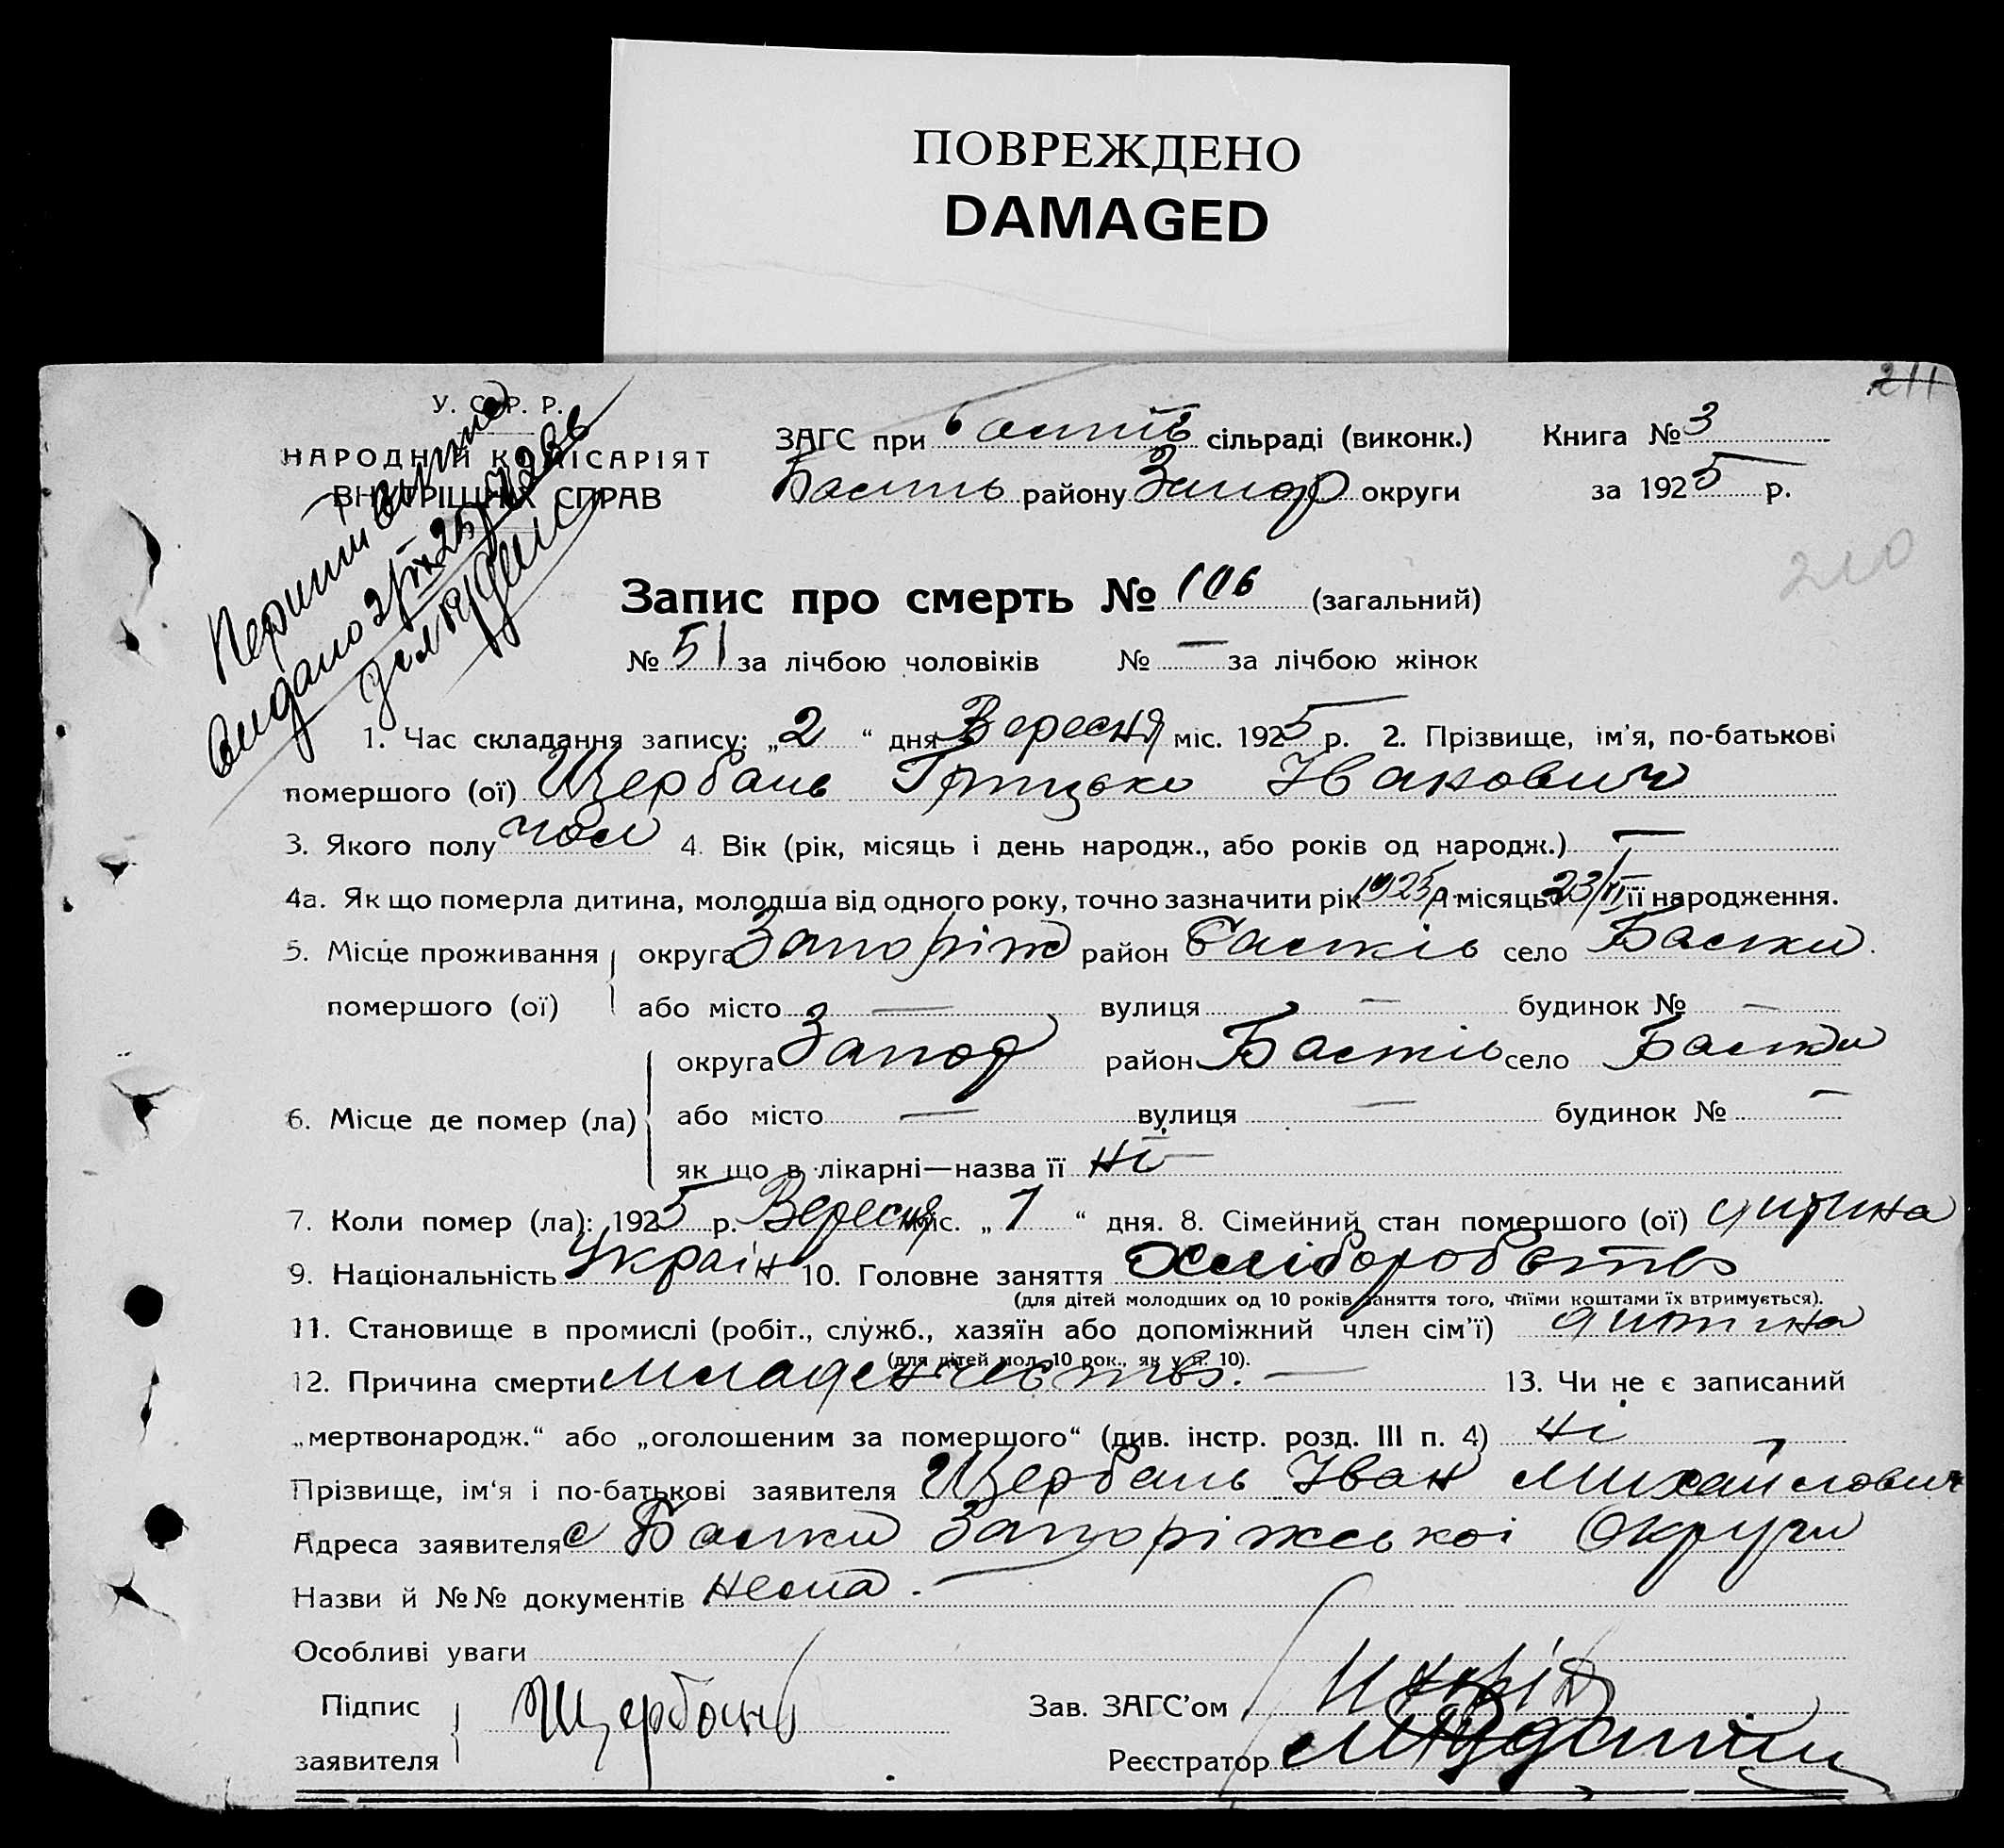 ПОВРЕЖДЕНО
DAMAGED
211
У. С. Р. Р.
НАРОДНІЙ КОМІСАРІЯТ
ВНУТРІШНІХ СПРАВ
ЗАГС при сільраді (виконк.) Книга № 3
району Запор округи за 1925 р.
210
Запис про смерть № 106 (загальний)
№ 51 за лічбою чоловіків № — за лічбою жінок
1. Час складання запису: „2“ дня Вересня міс. 1925 р. 2. Прізвище, ім'я, по-батькові
помершого (ої) Щербань Грицько Іванович
3. Якого полу чол 4. Вік (рік, місяць і день народж., або років од народж.) —
4а. Як що померла дитина, молодша від одного року, точно зазначити рік 1925 місяць 23/VI її народження.
5. Місце проживання округа Запоріж район село
помершого (ої) або місто — вулиця — будинок № —
округа Запор район село
6. Місце де помер (ла) або місто — вулиця — будинок № —
як що в лікарні—назва її ні —
7. Коли помер (ла): 1925 р. Вересня міс. „1“ дня. 8. Сімейний стан помершого (ої) дитина
9. Національність Україн 10. Головне заняття Хліборобство
(для дітей молодших од 10 років заняття того, чиїми коштами їх втримується).
11. Становище в промислі (робіт., служб., хазяїн або допоміжний член сім'ї) дитина
(для дітей мол. 10 рок., як у п. 10).
12. Причина смерти младенчество. — 13. Чи не є записаний
„мертвонародж.“ або „оголошеним за помершого“ (див. інстр. розд. III п. 4) ні
Прізвище, ім'я і по-батькові заявителя Щербань Іван Михайлович
Адреса заявителя с Запоріжської Округи
Назви й №№ документів нема. —
Особливі уваги
Підпис Щербань Зав. ЗАГС'ом
заявителя Реєстратор